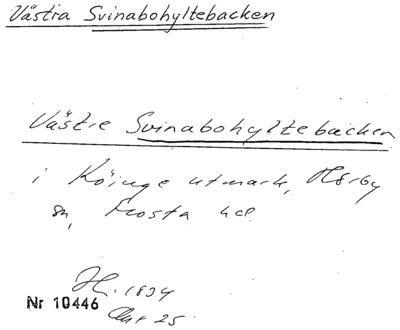 Västra Svinabohyltebacken
Västre Svinabohyltebacken
i Köinge utmark, Hörby
sn, Frosta hd.
H. 1834
Akt 25.
Nr 10446